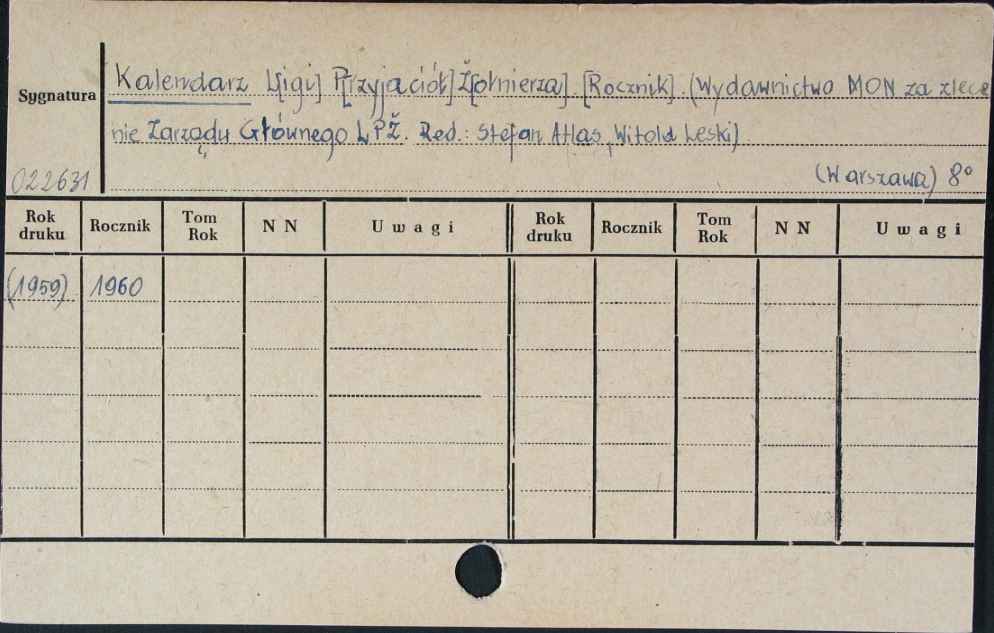 Kalendarz L[igi] P[rzyjaciół] Ż[ołnierza]. [Rocznik]. (Wydawnictwo MON za zlece
Sygnatura
nie Zarządu Głównego LPŻ. Red.: Stefan Atlas, Witold Leski)
022631 (Warszawa) 8°
Rok druku Rocznik Tom Rok NN Uwagi Rok druku Rocznik Tom Rok NN Uwagi
(1959) 1960